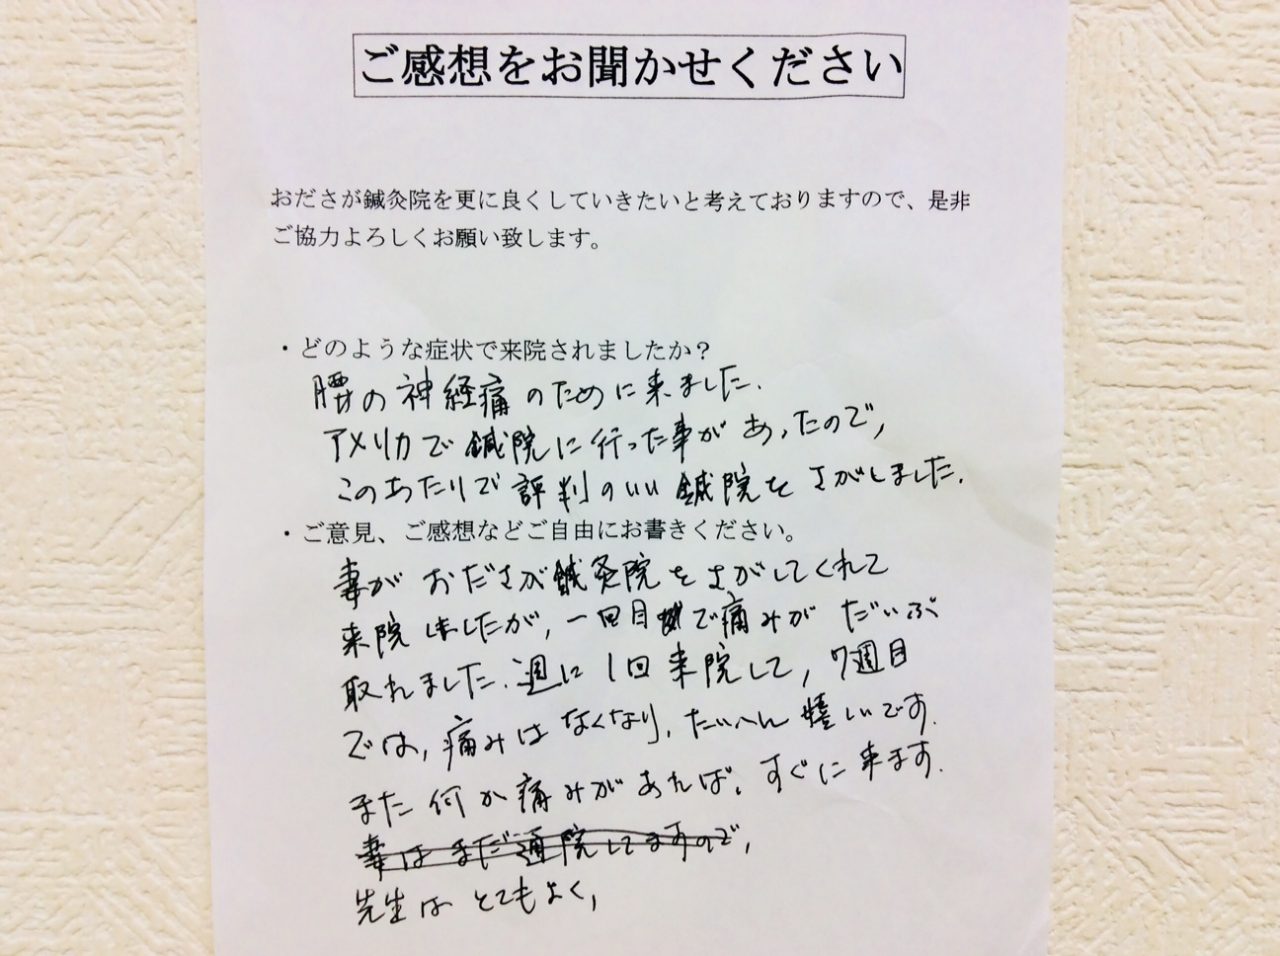 ご感想をお聞かせください
おださが鍼灸院を更に良くしていきたいと考えておりますので、是非
ご協力よろしくお願い致します。
・どのような症状で来院されましたか？
腰の神経痛のために来ました.
アメリカで鍼院に行った事があったので,
このあたりで評判のいい鍼院をさがしました.
・ご意見、ご感想などご自由にお書きください。
妻がおださが鍼灸院をさがしてくれて
来院しましたが, 一回目で痛みがだいぶ
取れました. 週に1回来院して, 7週目
では, 痛みはなくなり, たいへん嬉しいです.
また何か痛みがあれば, すぐに来ます.
妻はまだ通院してますので,
先生はとてもよく,